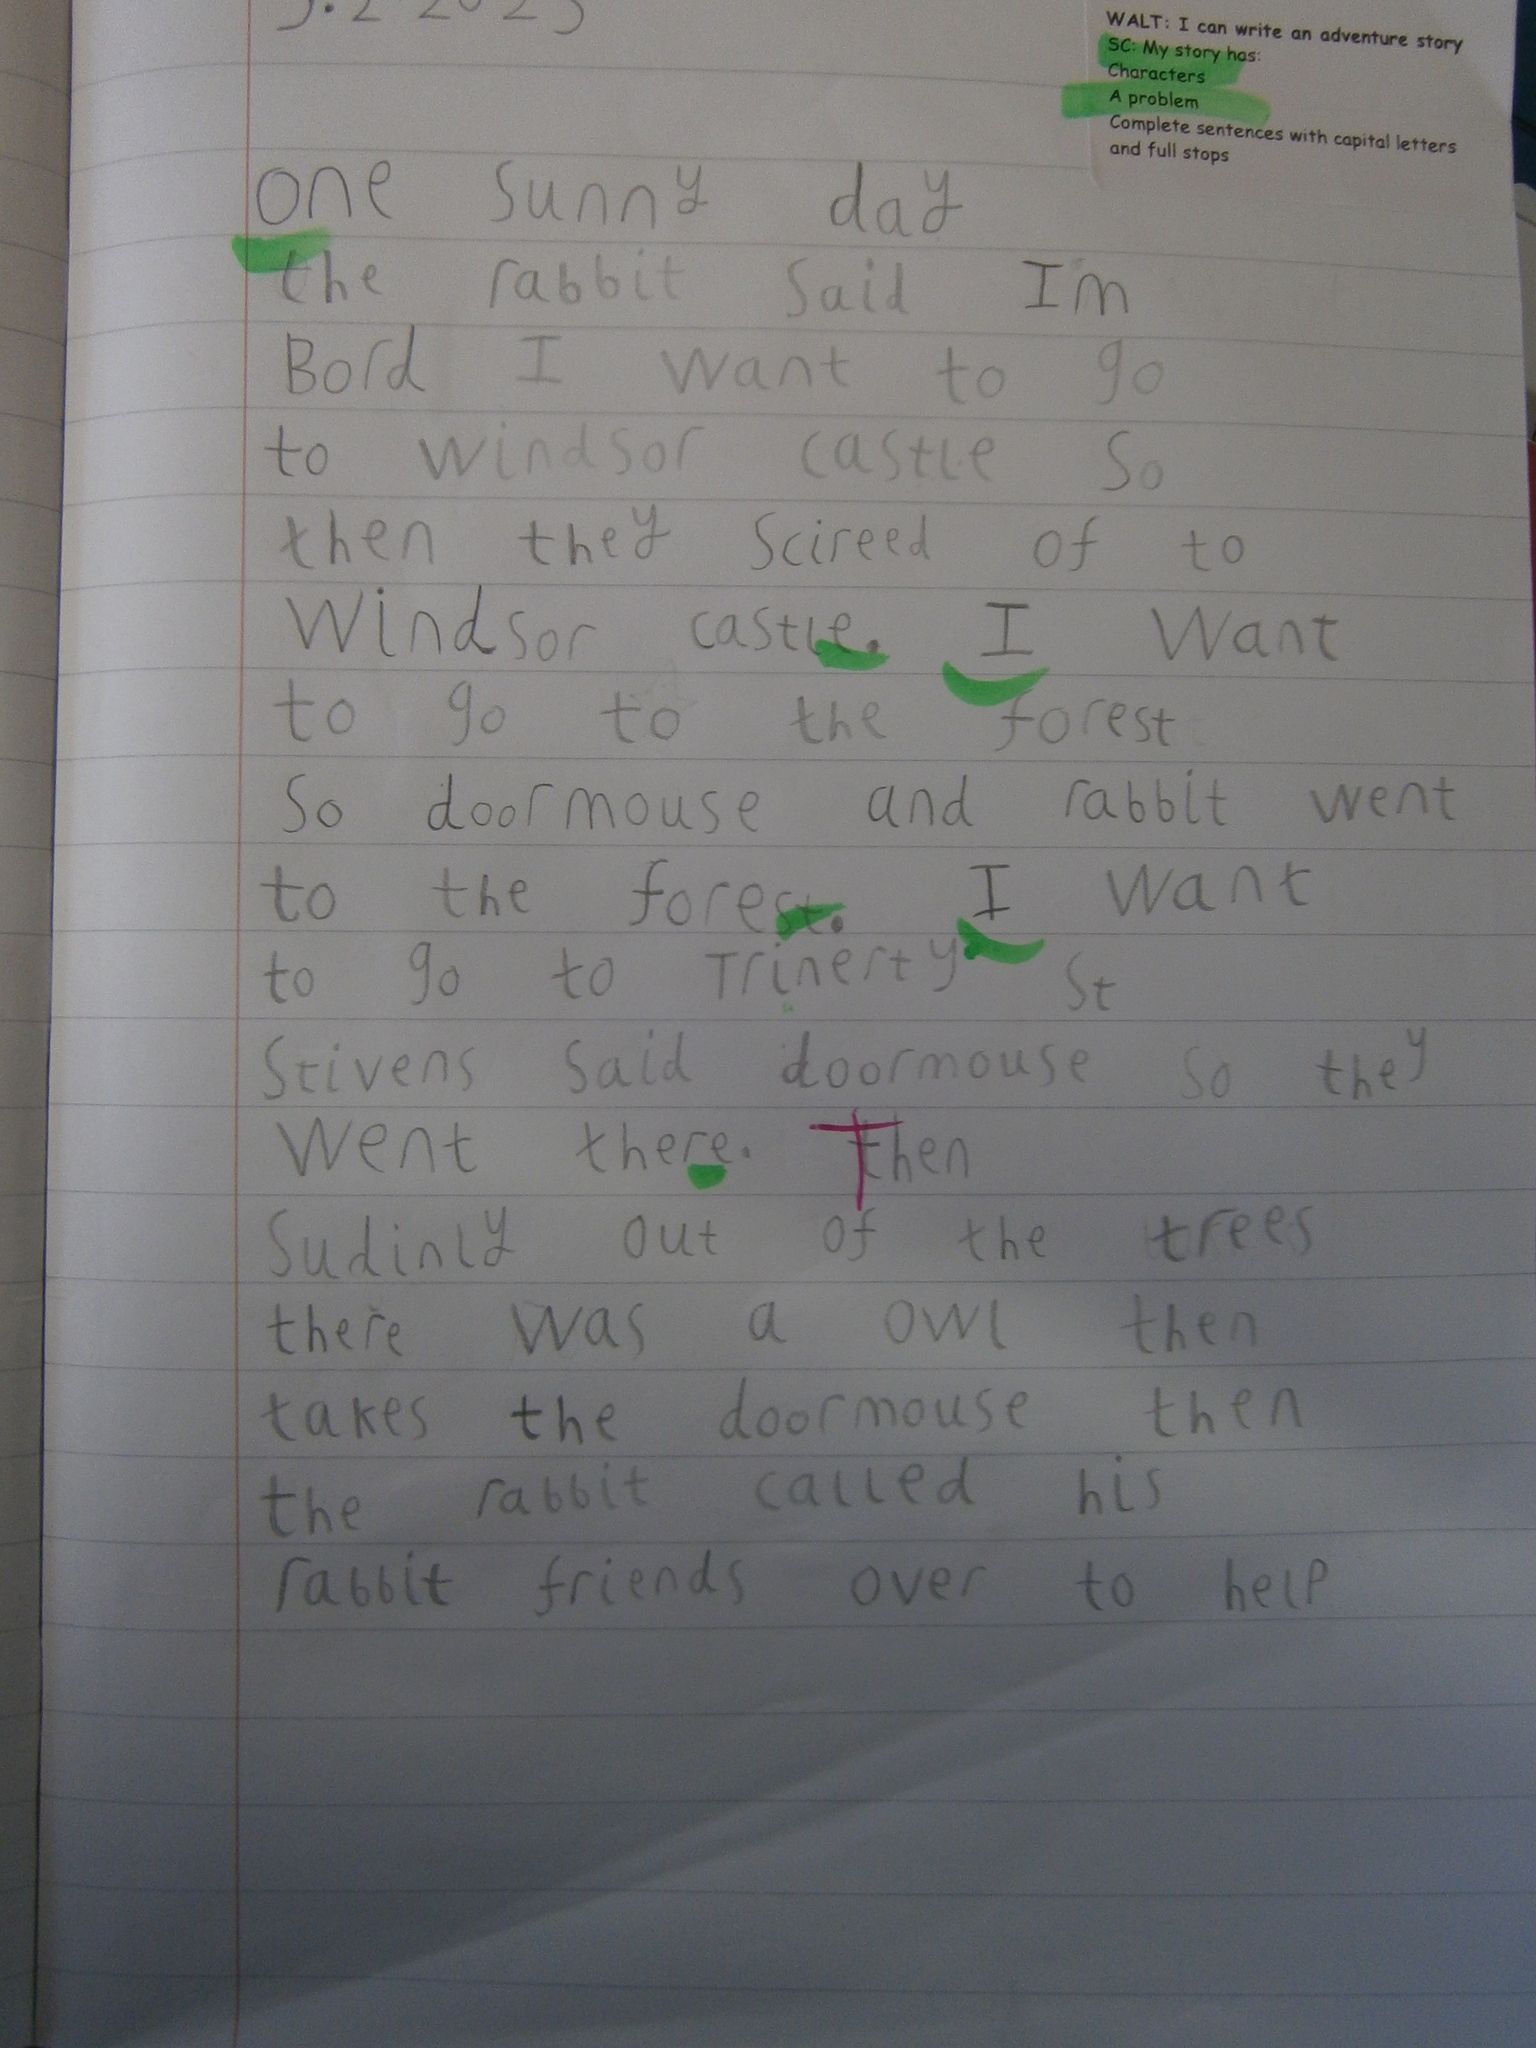 WALT: I can write an adventure story
SC: My story has:
Characters
A problem
Complete sentences with capital letters
and full stops
One sunny day
the rabbit said I'm
Bord I want to go
to windsor castle so
then they scireed of to
Windsor castle. I want
to go to the forest
So doormouse and rabbit went
to the forest. I want
to go to Trinerty St
Stivens said doormouse so they
went there. Then
Sudinly out of the trees
there was a owl then
takes the doormouse then
the rabbit called his
rabbit friends over to help